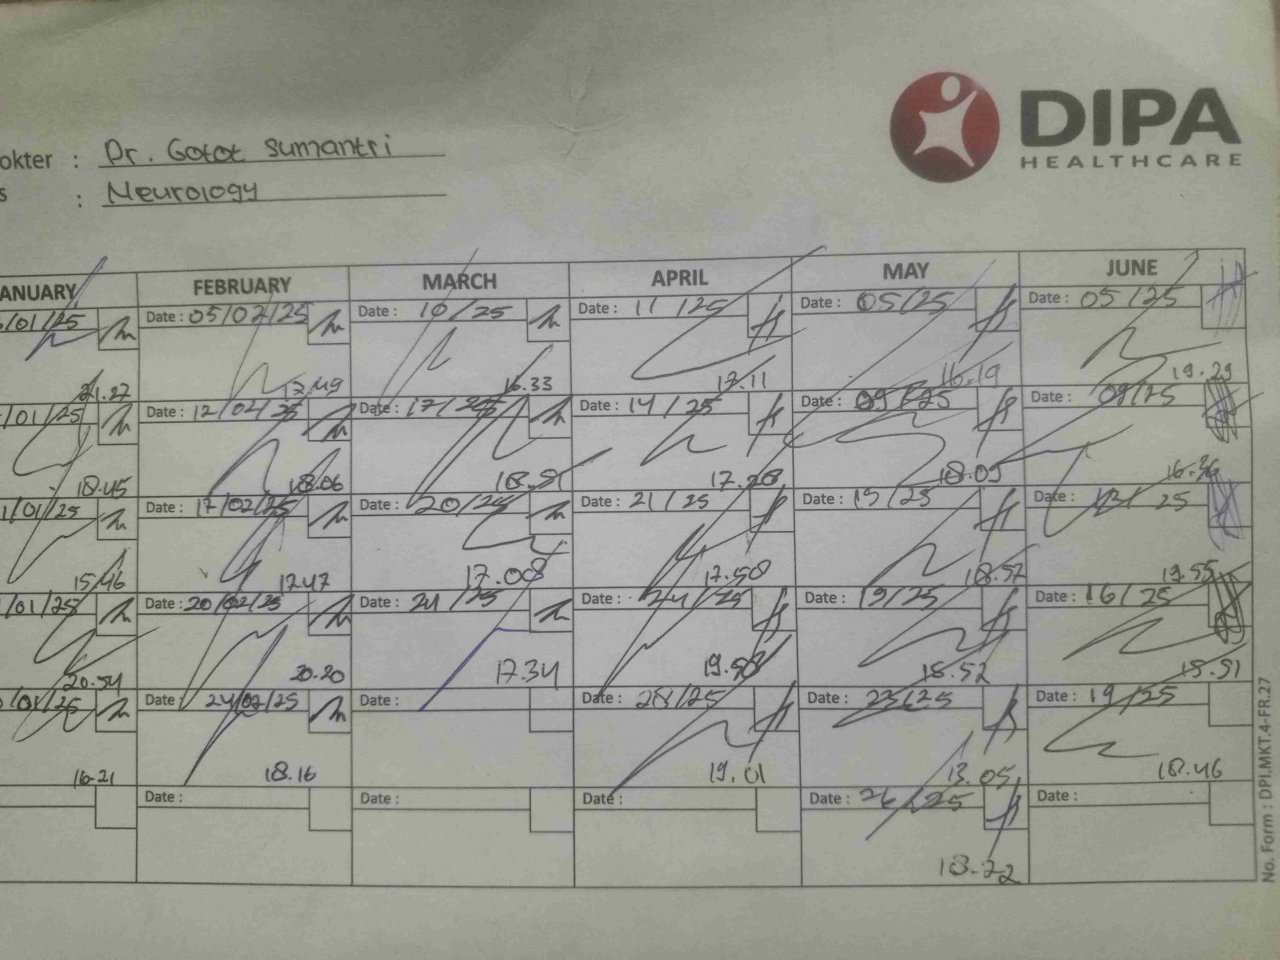 DIPA
HEALTHCARE
okter : Dr. Gotot Sumantri
s : Neurology
ANUARY FEBRUARY MARCH APRIL MAY JUNE
/01/25 Date : 05/02/25 Date : 10/25 Date : 11/25 Date : 05/25 Date : 05/25
21.27 17.49 16.33 17.11 16.19 19.29
/01/25 Date : 12/02/25 Date : 17/25 Date : 14/25 Date : 09/25 Date : 09/25
18.45 18.06 18.51 17.28 18.09 16.36
1/01/25 Date : 17/02/25 Date : 20/25 Date : 21/25 Date : 15/25 Date : 12/25
15.46 17.47 17.08 17.58 18.57 19.55
/01/25 Date : 20/02/25 Date : 24/25 Date : 24/25 Date : 19/25 Date : 16/25
20.54 20.20 17.34 19.58 18.52 18.51
/01/25 Date : 24/02/25 Date : Date : 28/25 Date : 23/25 Date : 19/25
16.21 18.16 19.01 13.05 18.46
Date : Date : Date : Date : 26/25 Date :
18.22
No. Form : DPI.MKT.4-FR.27